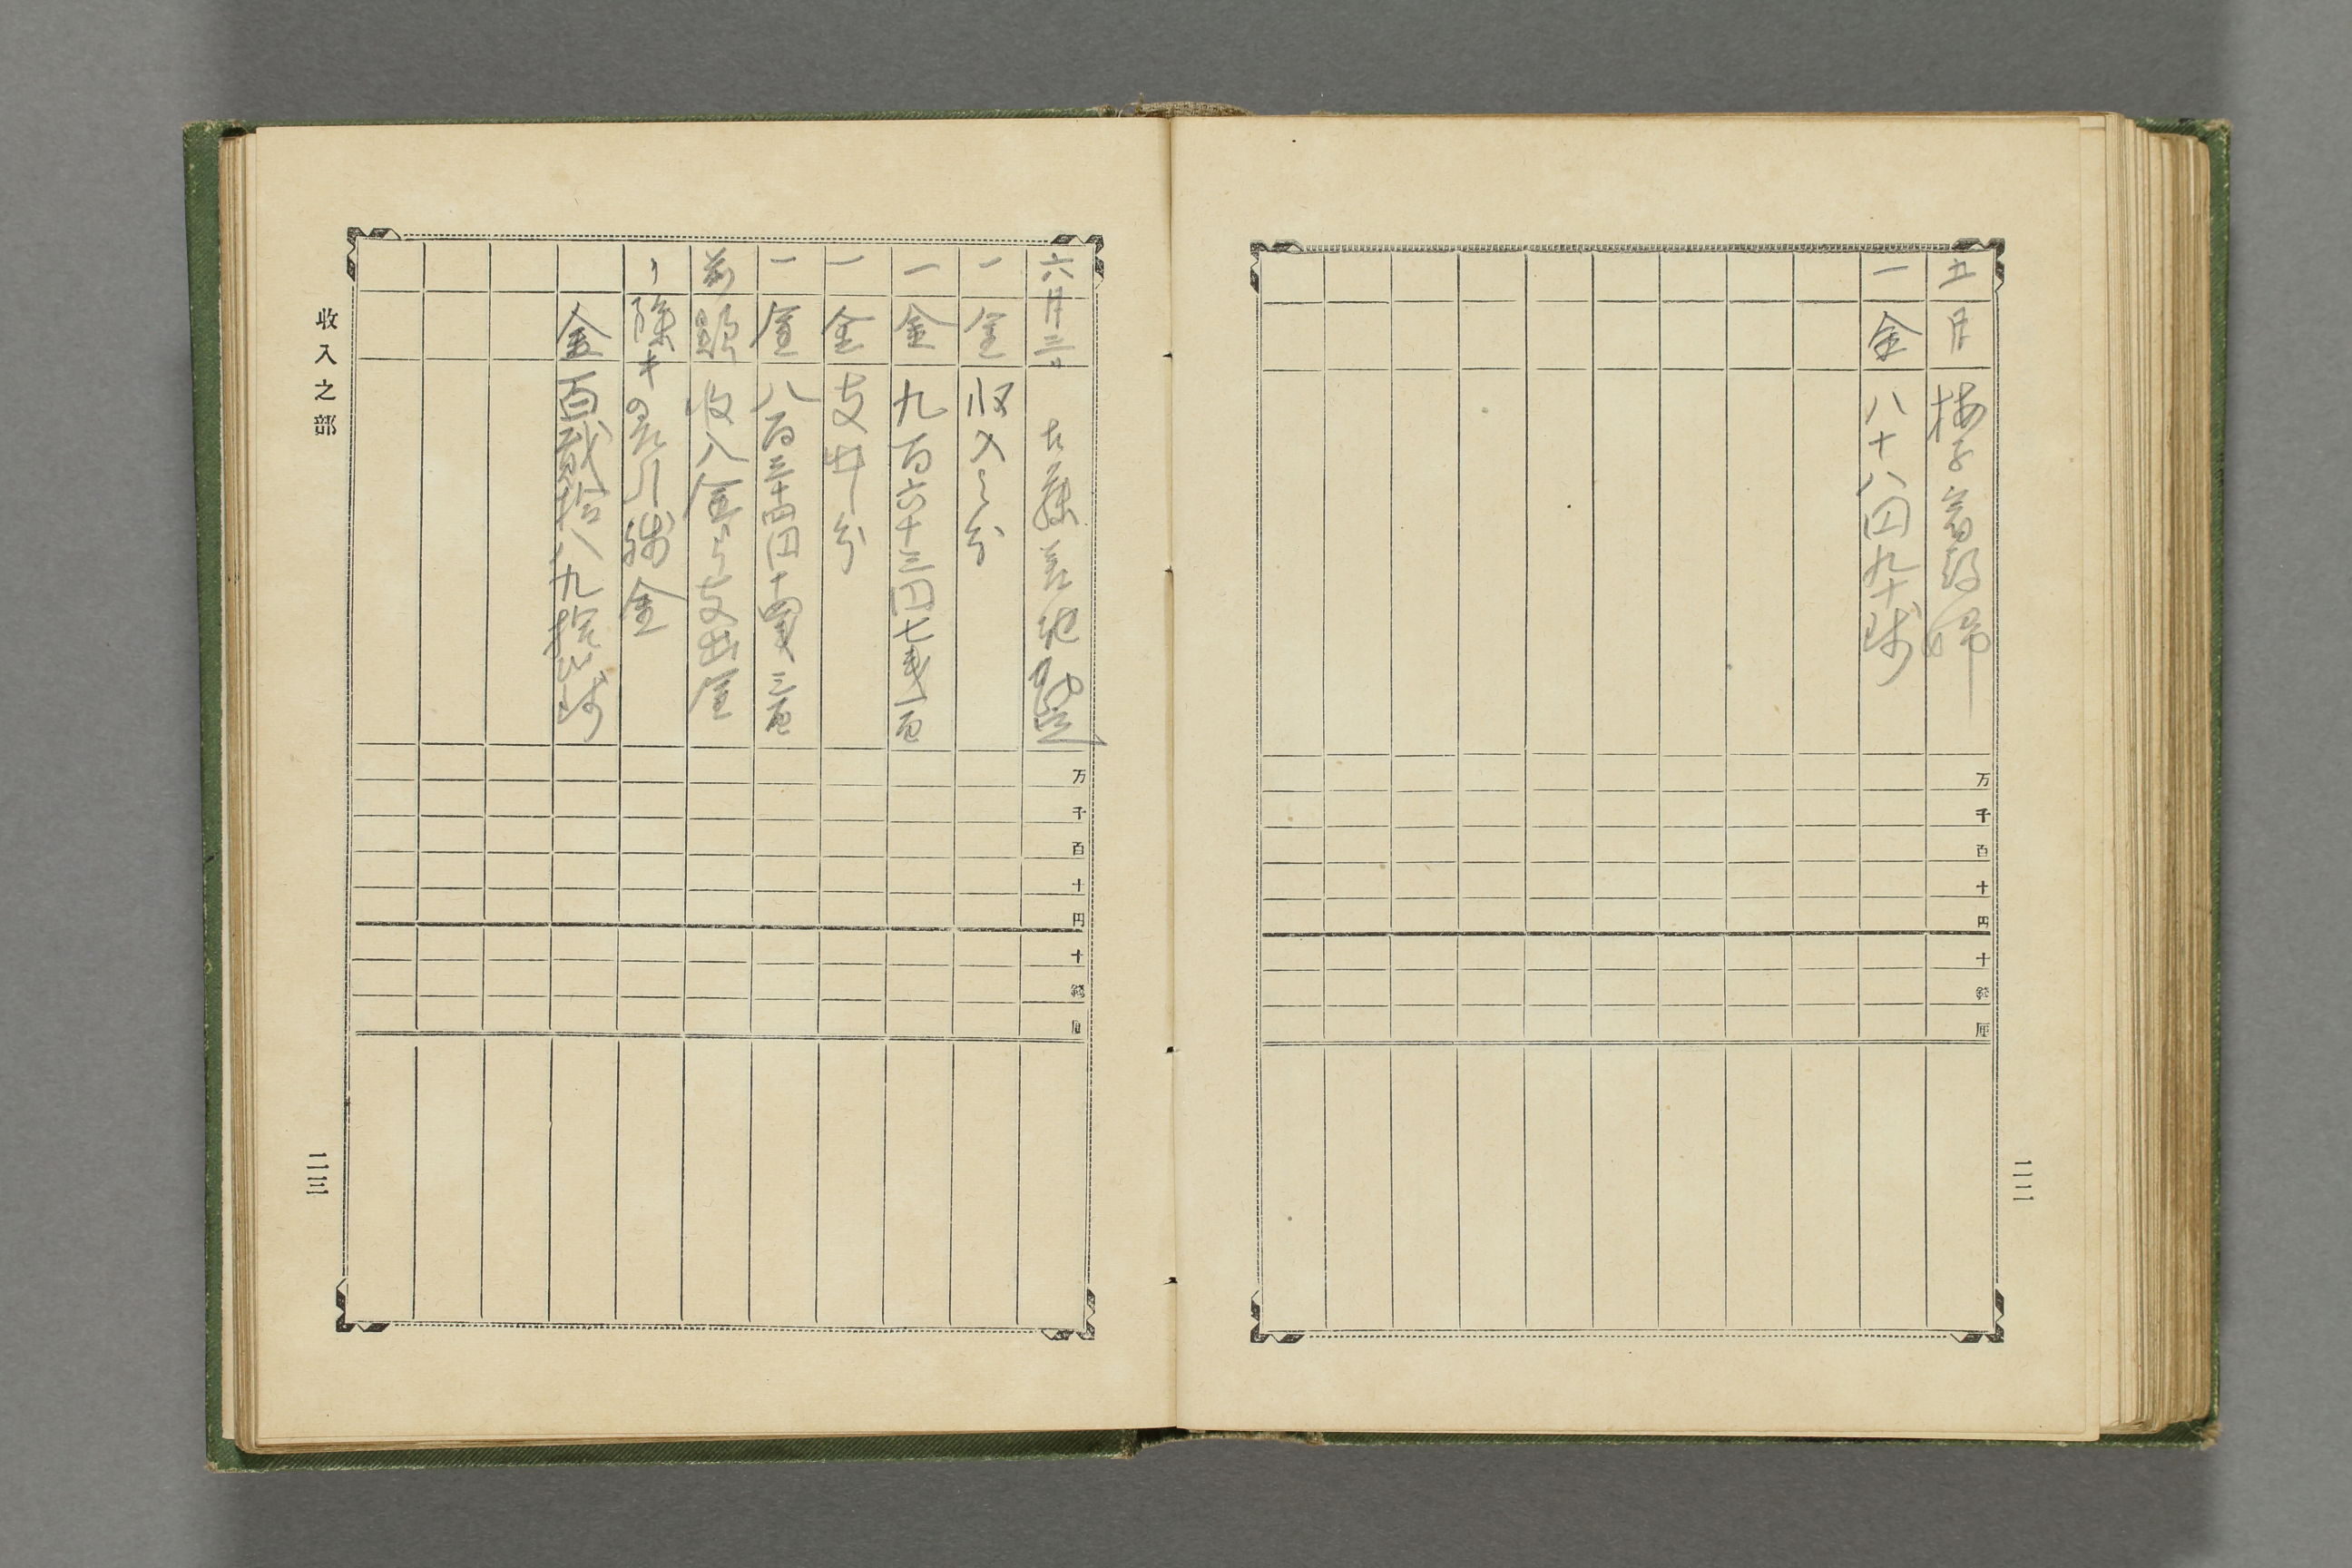 五月 梅子
一金 八十八円九十銭
万
千
百
十
円
十
銭
厘
一一二
六月三日
一金 収入之分
一金 九百六十三円七銭一厘
一金 支出ノ分
一金 八百三十四円十四銭三厘
前顕 收入金ヨリ支出金
引残金
金 百貮拾八九拾
万
千
百
十
円
十
銭
厘
收入之部
一一三